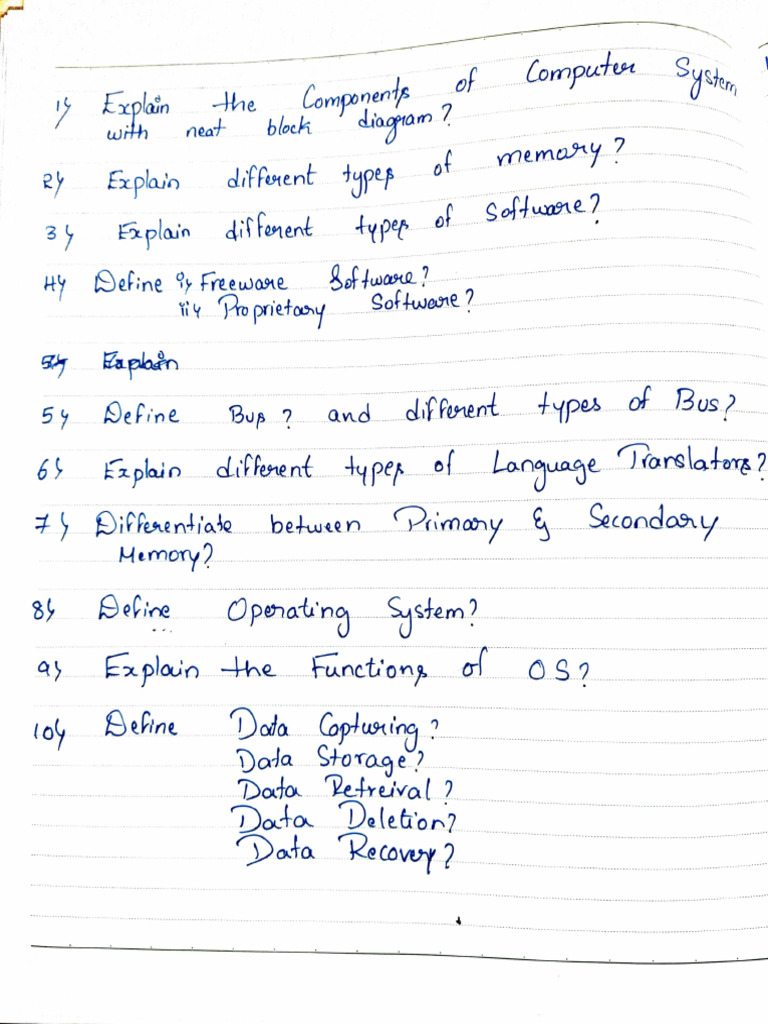 1) Explain the Components of Computer System
with neat block diagram?
2) Explain different types of memory?
3) Explain different types of Software?
4) Define i) Freeware Software?
ii) Proprietary Software?
5) Explain
5) Define Bus? and different types of Bus?
6) Explain different types of Language Translators?
7) Differentiate between Primary & Secondary
Memory?
8) Define Operating System?
9) Explain the Functions of OS?
10) Define Data Capturing?
Data Storage?
Data Retreival?
Data Deletion?
Data Recovery?